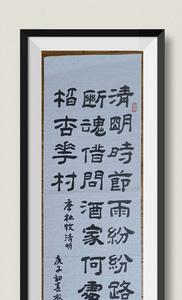 清明時節雨紛紛路
斷魂借問酒家何處
指杏華村
唐杜牧清明
庚子初夏